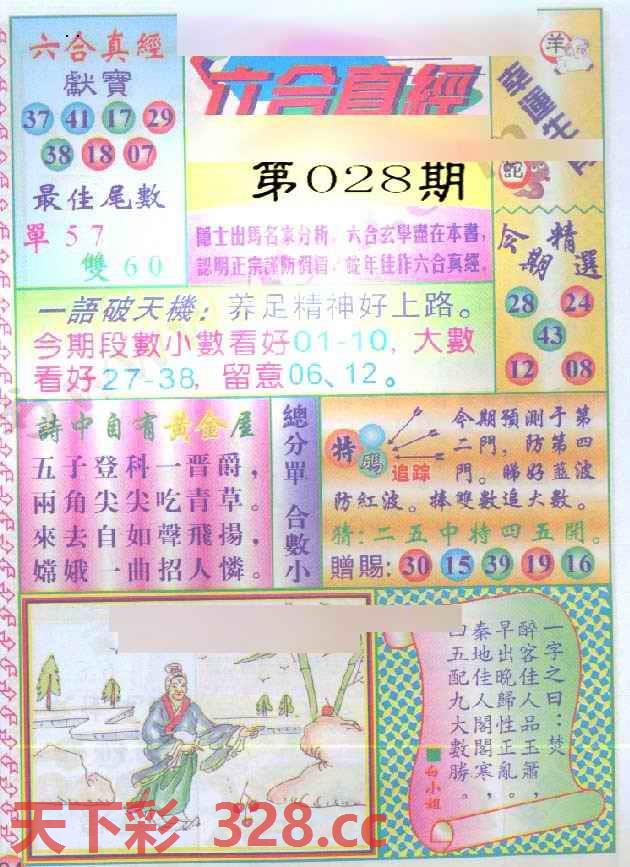 六合真經
獻寶
37 41 17 29
38 18 07
最佳尾數
單57
雙60
六合真經
第028期
隱士出馬名家分析，六合玄學盡在本書，
認明正宗謹防假冒，蛇年佳作六合真經。
羊
幸運生
蛇
今期精選
28 24
43
12 08
一語破天機：养足精神好上路。
今期段數小數看好01-10，大數
看好27-38，留意06、12。
詩中自有黃金屋
五子登科一晋爵，
兩角尖尖吃青草。
來去自如聲飛揚，
嫦娥一曲招人憐。
總分單 合數小
特碼
追踪
今期預測于第
二門，防第四
門。睇好藍波
防紅波。棒雙數追大數。
猜：二五中特四五開。
贈賜：30 15 39 19 16
一字之曰：焚
醉客佳人品玉簫，
早出晚歸性正亂。
秦地佳人閣閣寒，
五配九大數勝。
白小姐
天下彩 328.cc